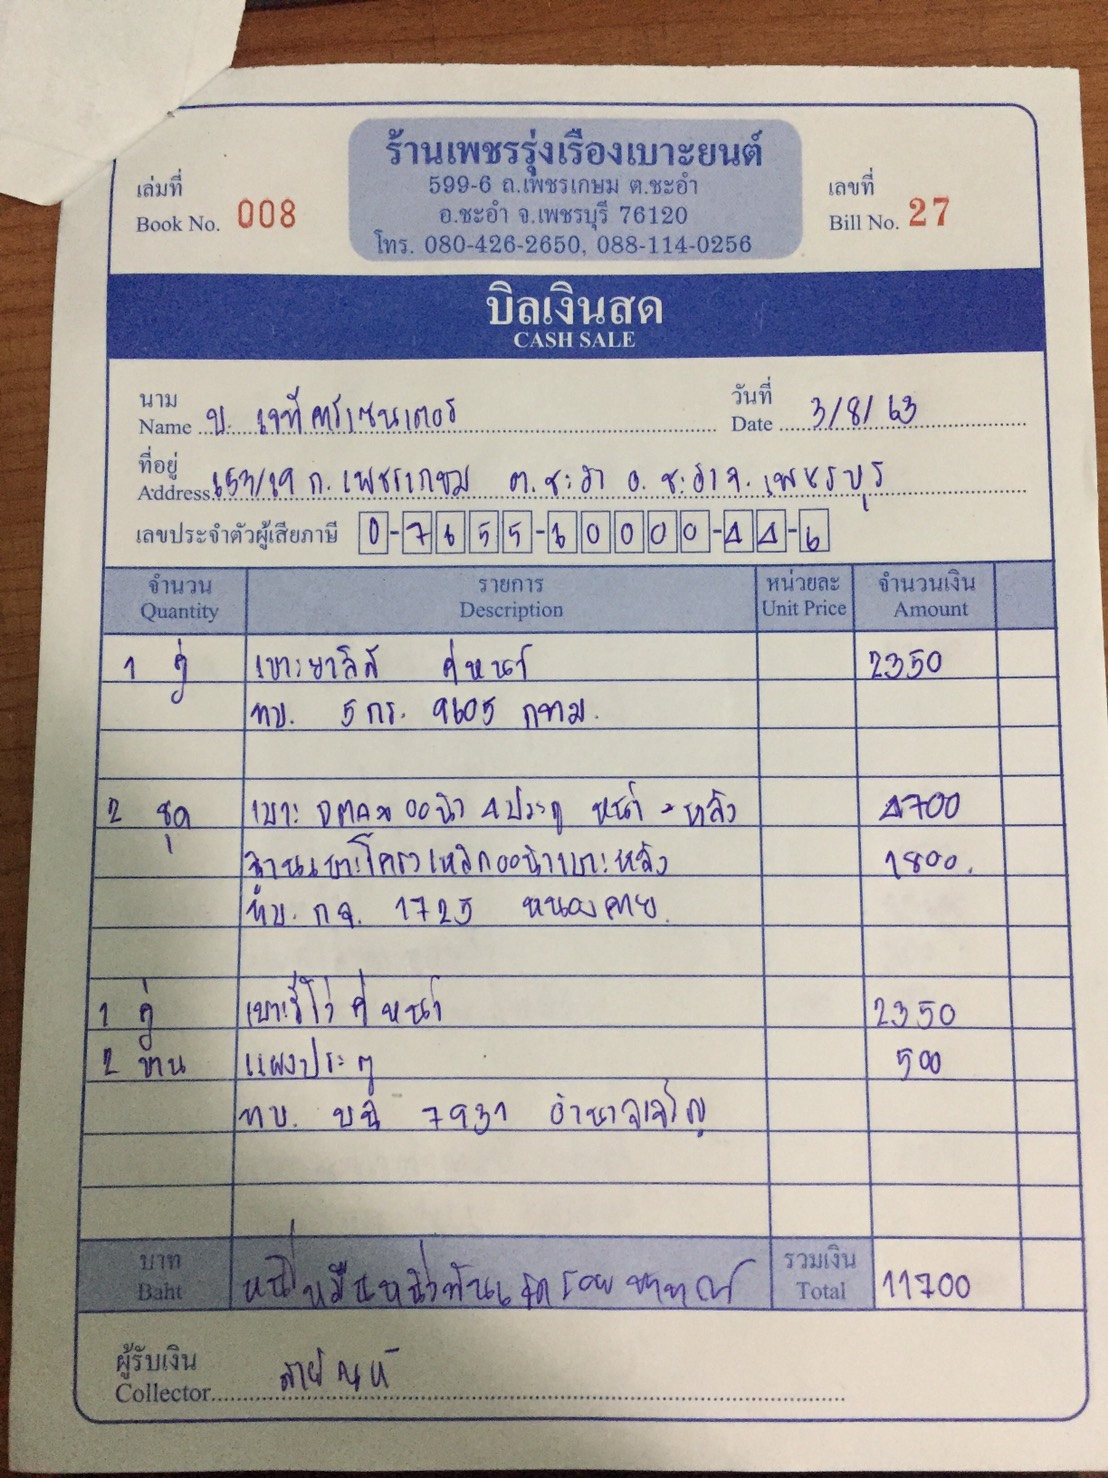 ร้านเพชรรุ่งเรืองเบาะยนต์
599-6 ถ.เพชรเกษม ต.ชะอำ
อ.ชะอำ จ.เพชรบุรี 76120
โทร. 080-426-2650, 088-114-0256
เล่มที่
Book No. 008
เลขที่
Bill No. 27
บิลเงินสด
CASH SALE
นาม
Name บ. เจที คาร์เซนเตอร์
วันที่
Date 3/8/63
ที่อยู่
Address 153/19 ถ. เพชรเกษม ต. ชะอำ อ. ชะอำ จ. เพชรบุรี
เลขประจำตัวผู้เสียภาษี 0-7655-60000-44-6
จำนวน รายการ หน่วยละ จำนวนเงิน
Quantity Description Unit Price Amount
1 คู่ เบาะยาลิส คู่หน้า 2350
ทบ. 5 กร. 9605 กทม.
2 ชุด เบาะ 4 ประตู หน้า - หลัง 4700
ฐานเบาะโครงเหล็ก เบาะหลัง 1800.
ทบ. กจ. 1725 หนองคาย
1 คู่ เบาะรีโว่ คู่หน้า 2350
2 บาน แผงประตู 500
ทบ. บฉ 7931 อำนาจเจริญ
บาท
Baht หนึ่งหมื่นหนึ่งพันเจ็ดร้อยบาท
รวมเงิน
Total 11700
ผู้รับเงิน
Collector